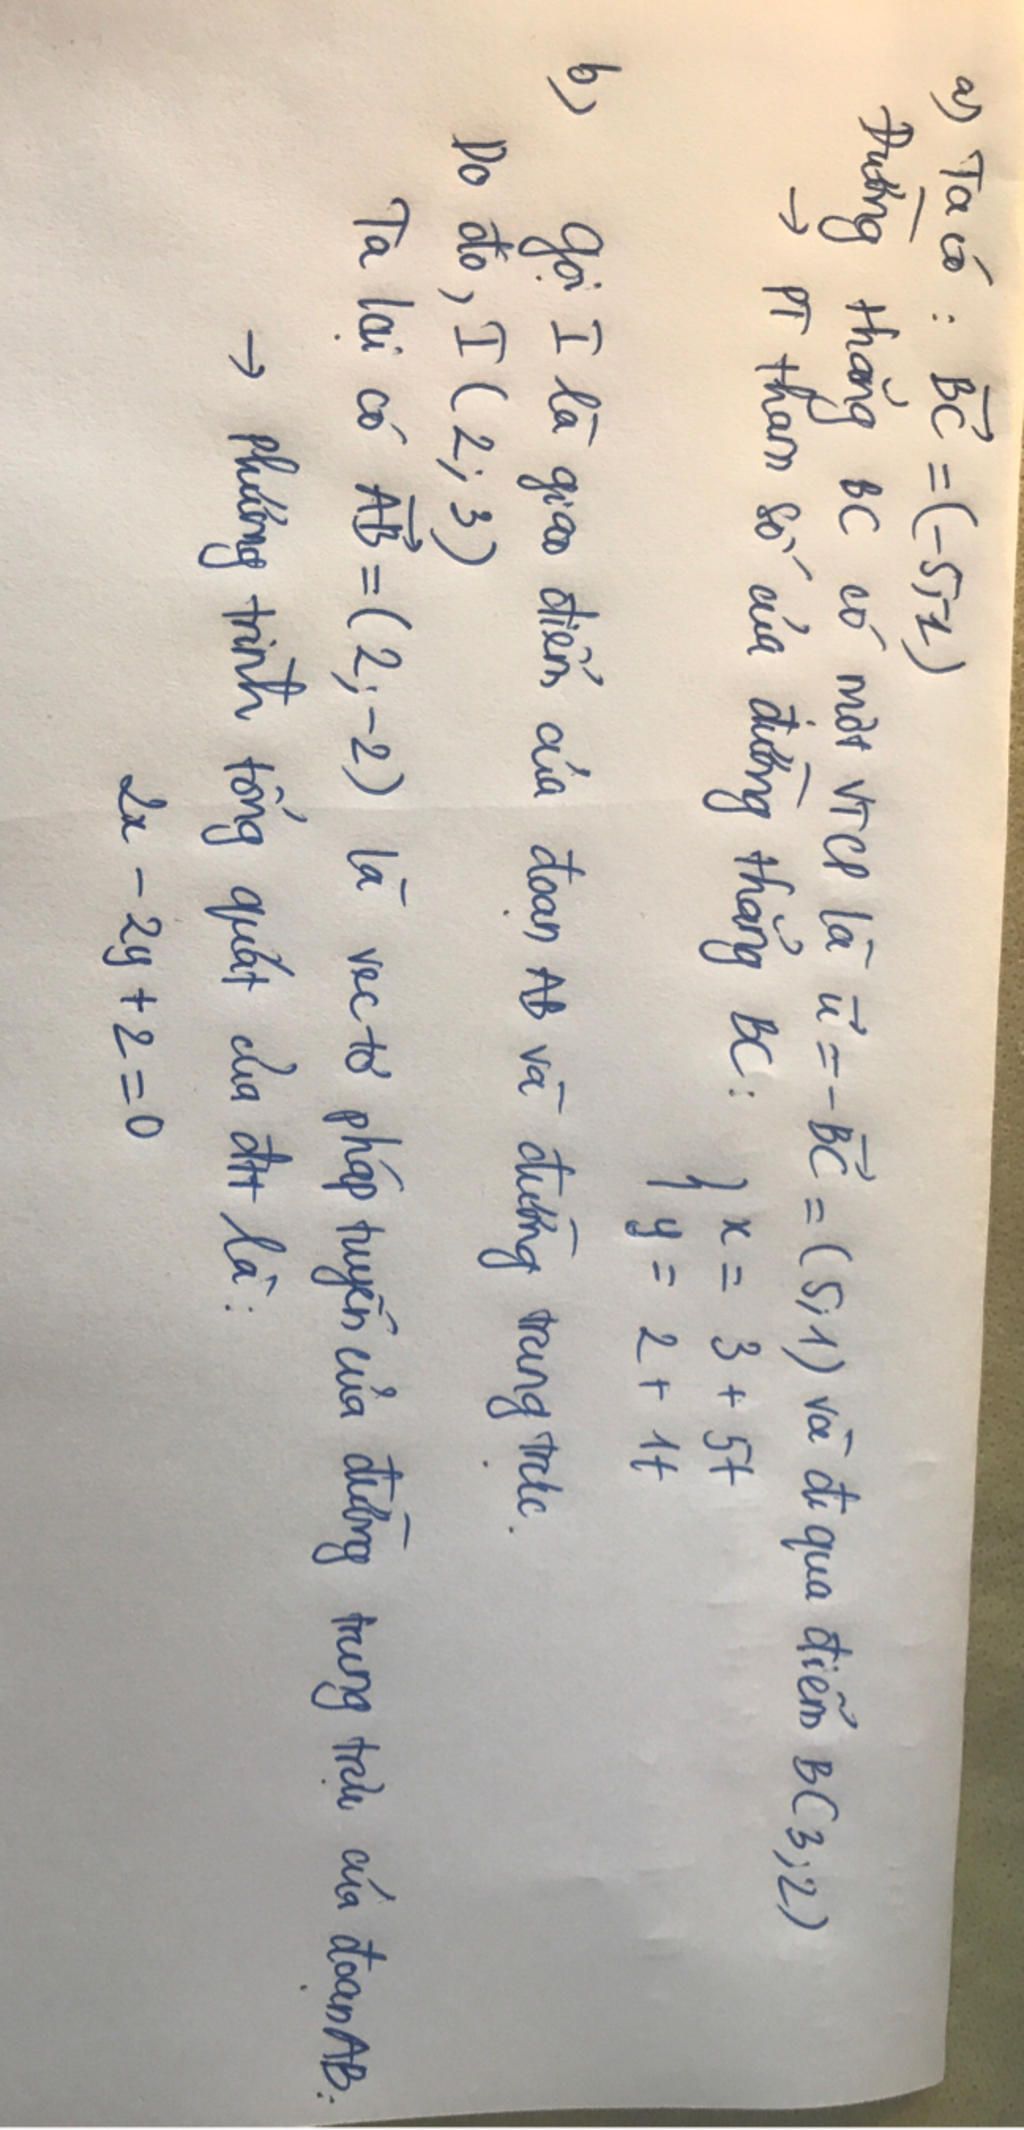 a) Ta có : BC = (-5;-1)
Đường thẳng BC có một VTCP là u = -BC = (5;1) và đi qua điểm B(3;2)
→ PT tham số của đường thẳng BC: { x = 3 + 5t
y = 2 + 1t
b)
Gọi I là giao điểm của đoạn AB và đường trung trực.
Do đó, I (2;3)
Ta lại có AB = (2;-2) là vec tơ pháp tuyến của đường trung trực của đoạn AB.
→ Phương trình tổng quát của đtt là:
2x - 2y + 2 = 0